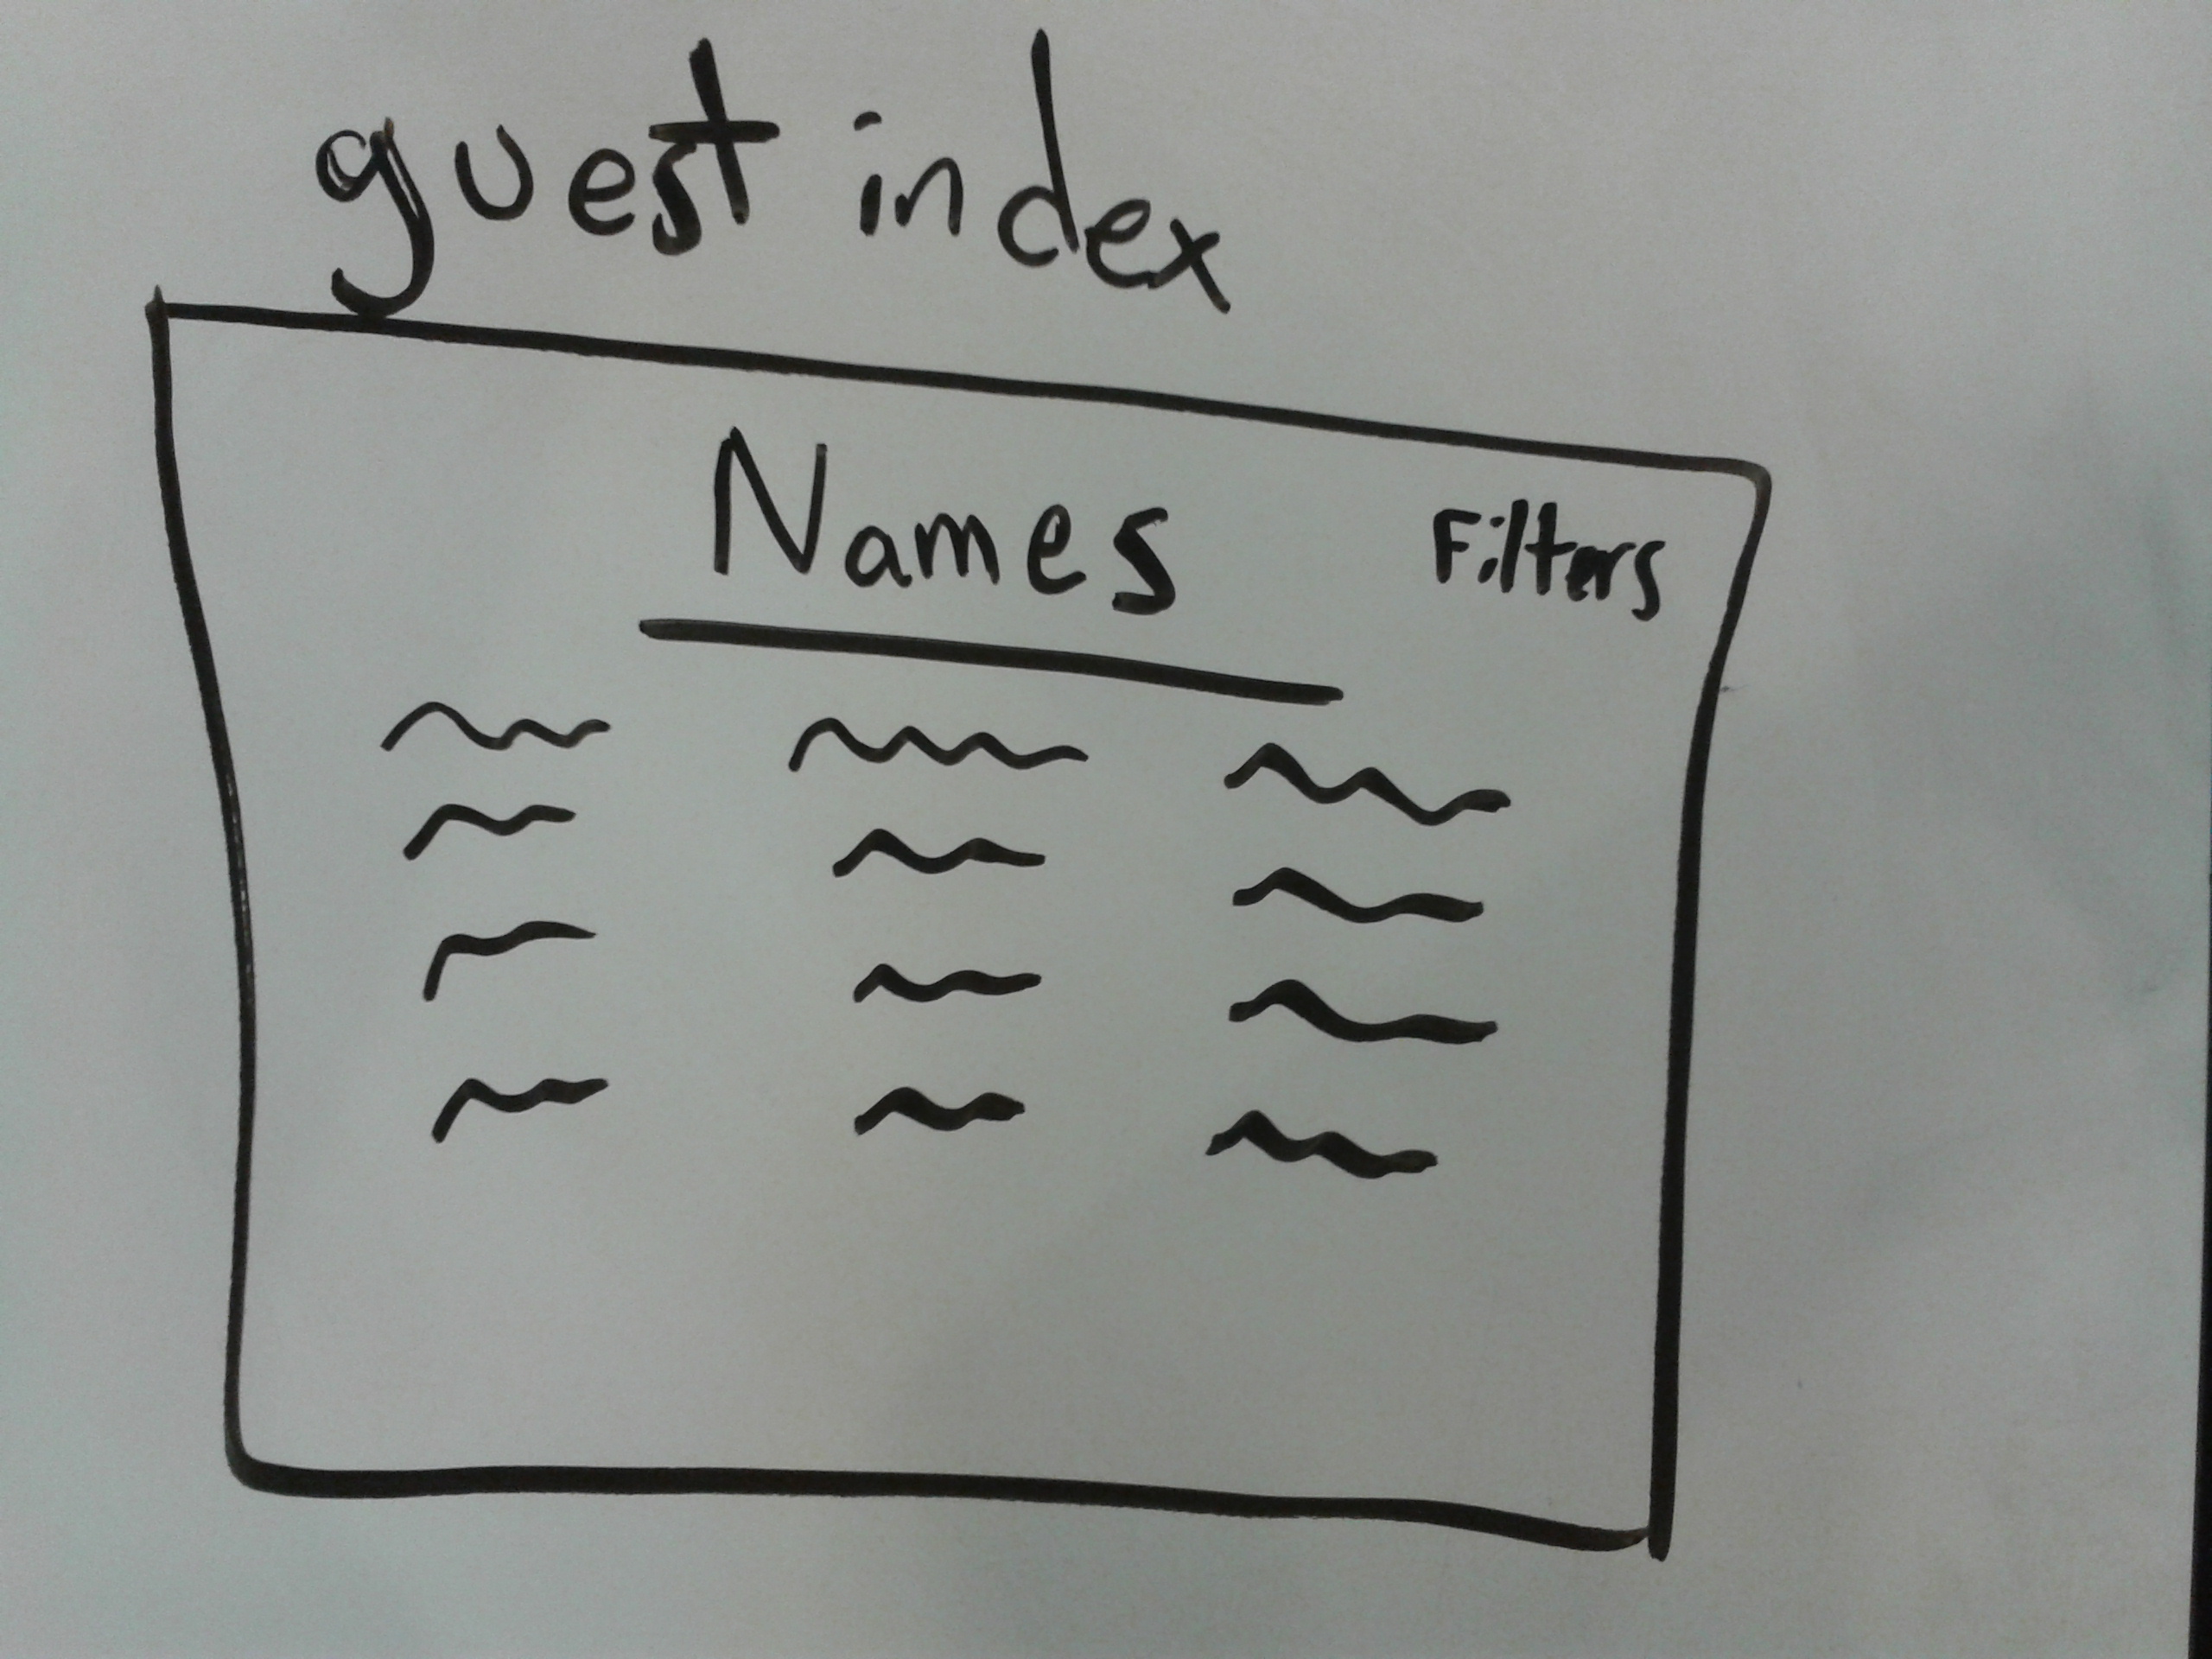 guest index
Names
Filters